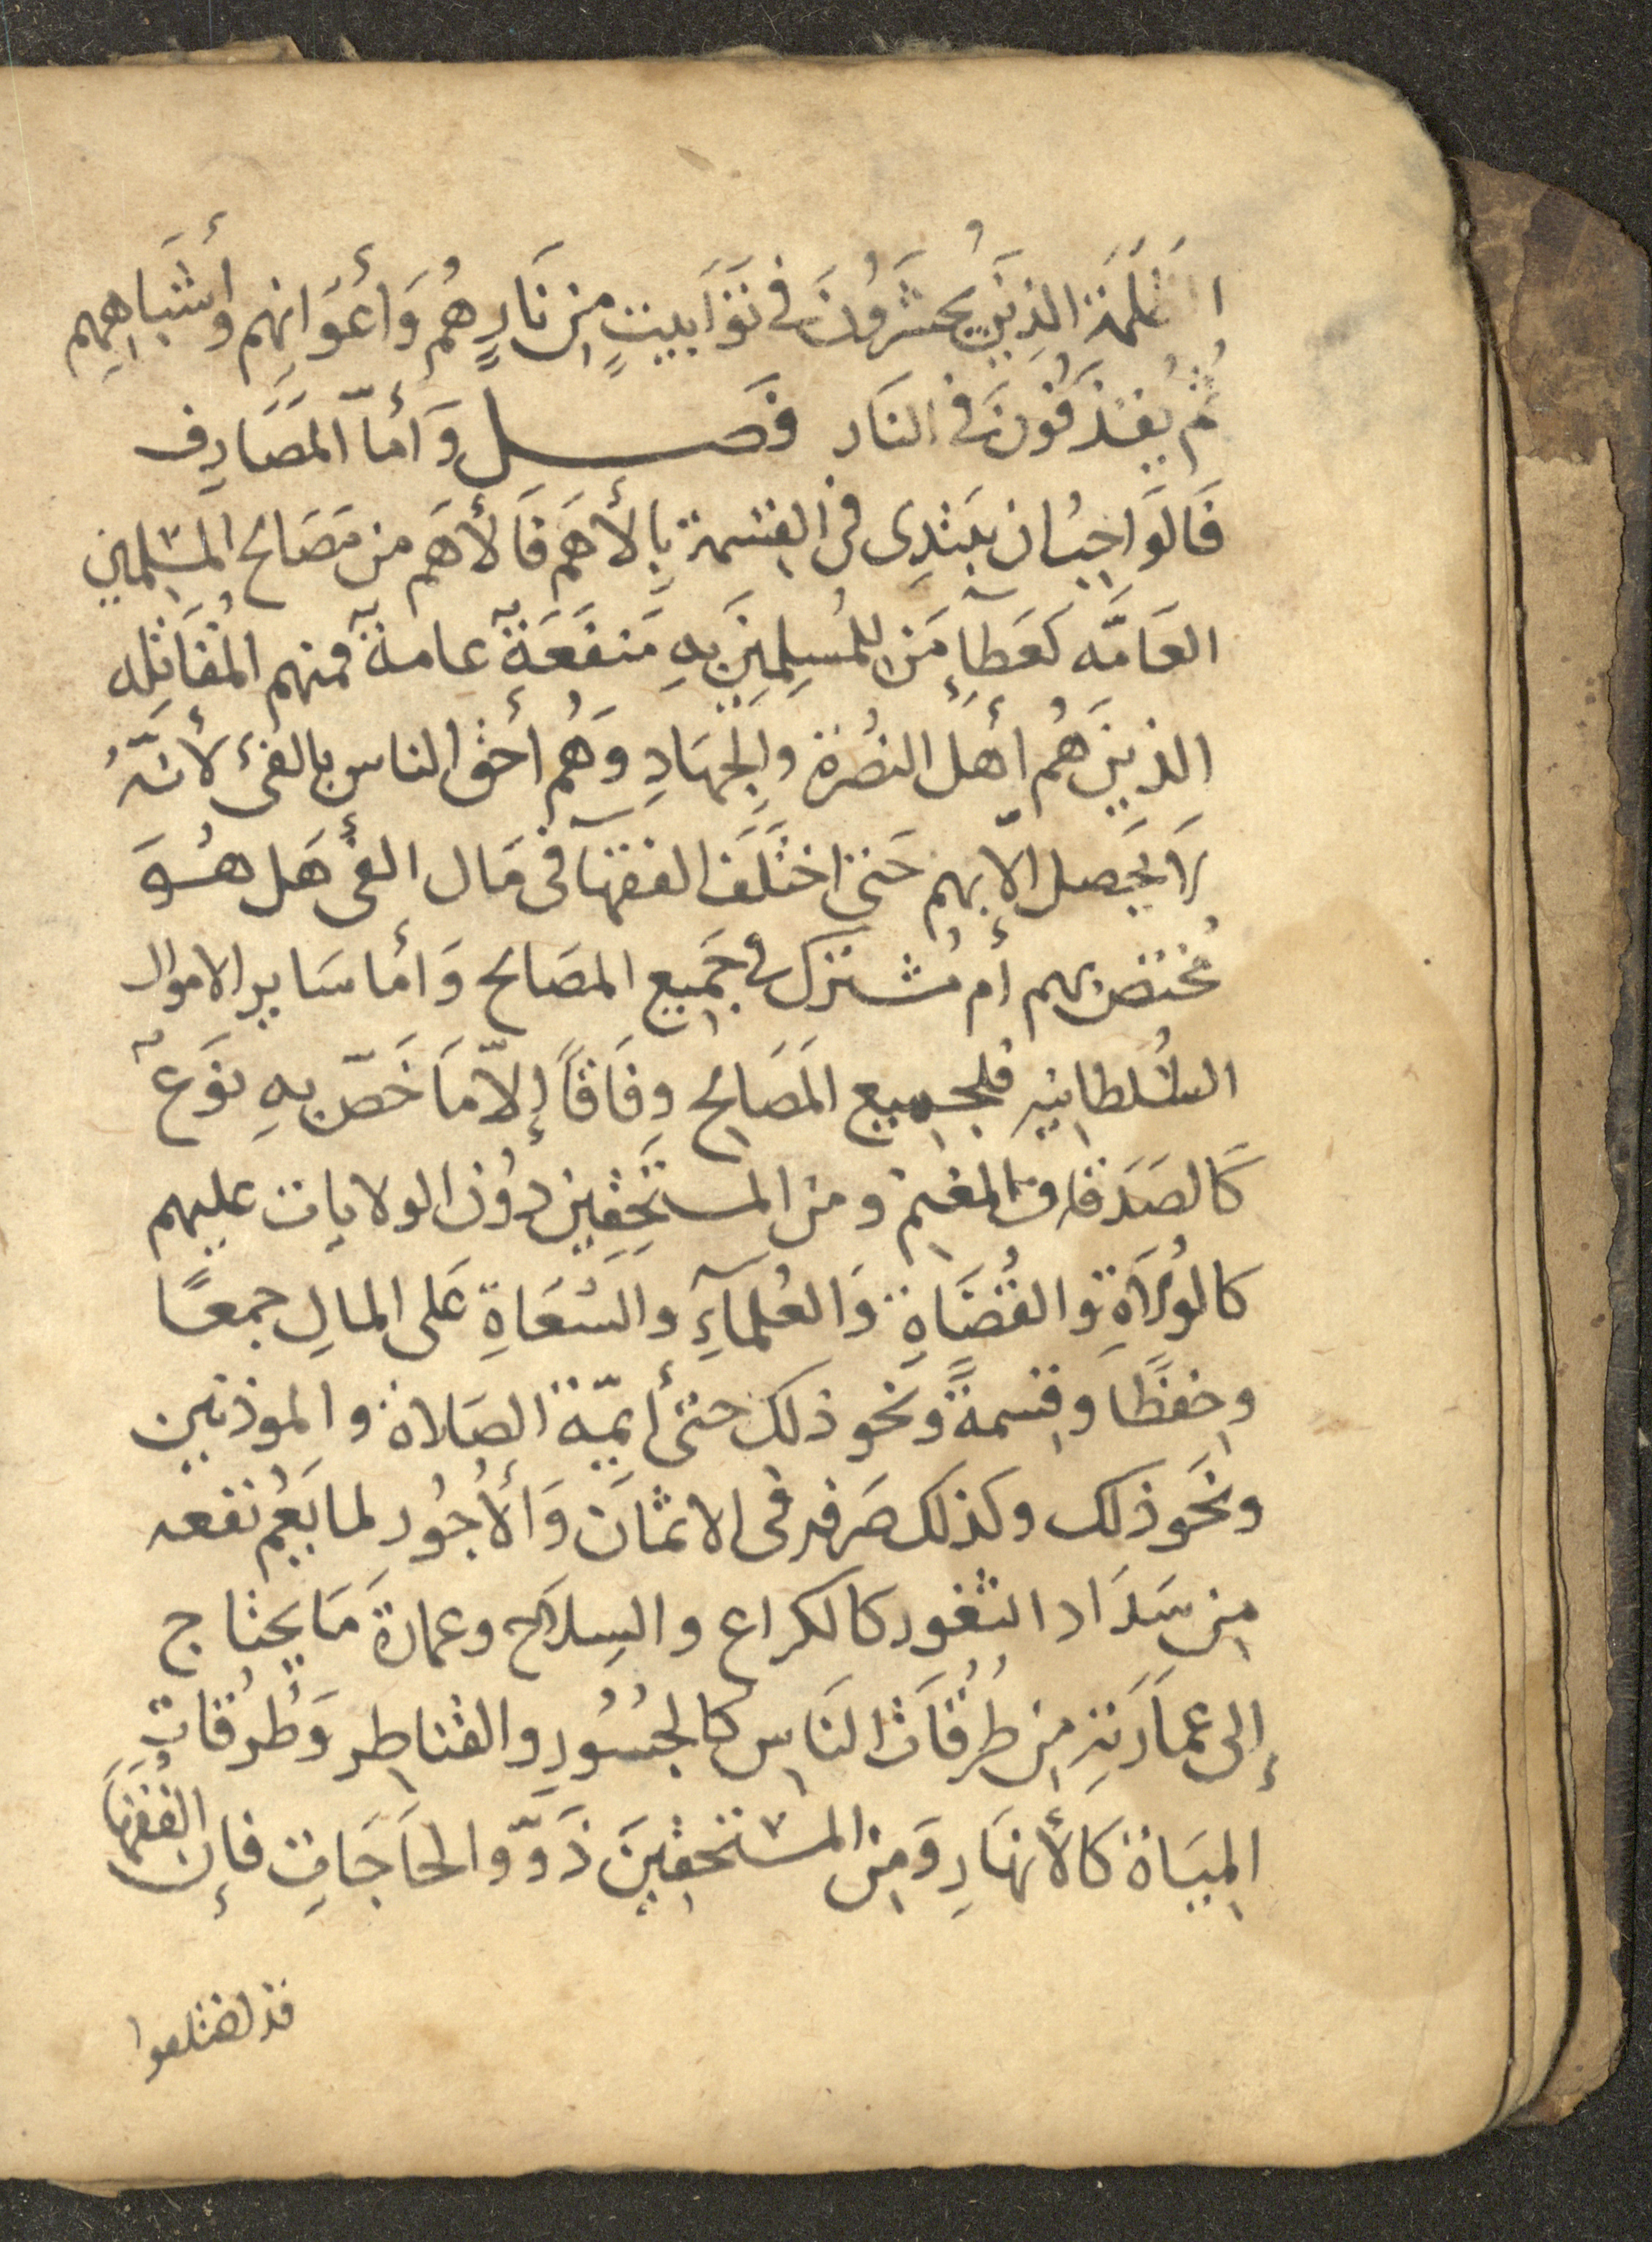 الظلمة الذِين يُحشَرُونَ في تَوَابيتٍ مِن نَارٍ هُم وَأعْوَانِهِم وأَشبَاهِهِم
ثُم يُقذَفُونَ في النَار فَصل وَأمّا المَصَارِف
فَالوَاجِبُ ان يبتَدِى في القِسمة بِالأهَم فَالأهَم من مَصَالح المُسلِمين
العَامَّه كَعَطآءِ مَن لِلمُسلِمِينَ بِهِ مَنفَعَةٌ عامةٌ فمنهم المُقَاتِله
الذِينَ هُم أهلُ النُصْرة وَالجِهَادِ وَهُم أحق الناس بالفئ لأنَّهُ
لَا يَحصل إلّا بِهم حَتى اختَلَفَ الفقهآ في مَال الفئ هَل هُوَ
مُختص بِهم أم مُشترك في جَمِيع المصَالح وَأما سَاير الاموال
السُلطانِيه فلجمِيع المَصَالِح وِفَاقًا إلّا مَا خَصّ بِهِ نَوعٌ
كَالصَدَقات والمغنم ومن المستَحِقِين ذوُو الولايات عليهم
كالوُلَاةِ والقُضَاةِ وَالعُلمآءِ والسُعَاةِ عَلى المالِ جمعًا
وحِفظًا وقِسمةً ونحو ذلك حتى أيمّة الصَلاة والموذنين
ونَحو ذلك وكذلك صَرفه في الاثمَان وَالأُجُور لما يَعُم نفعه
مِن سَدَاد الثغور كالكراع والسِلاح وعمارة مَا يحتاج
إلى عمَارَتِه مِن طُرقَات النَاسِ كالجُسُورِ والقناطِر وَطُرقَاتِ
المِيَاة كَالأنهَارِ وَمِن المستحِقِينَ ذَوُو الحَاجَاتِ فإن الفُقَهَا
قد اختلفوا